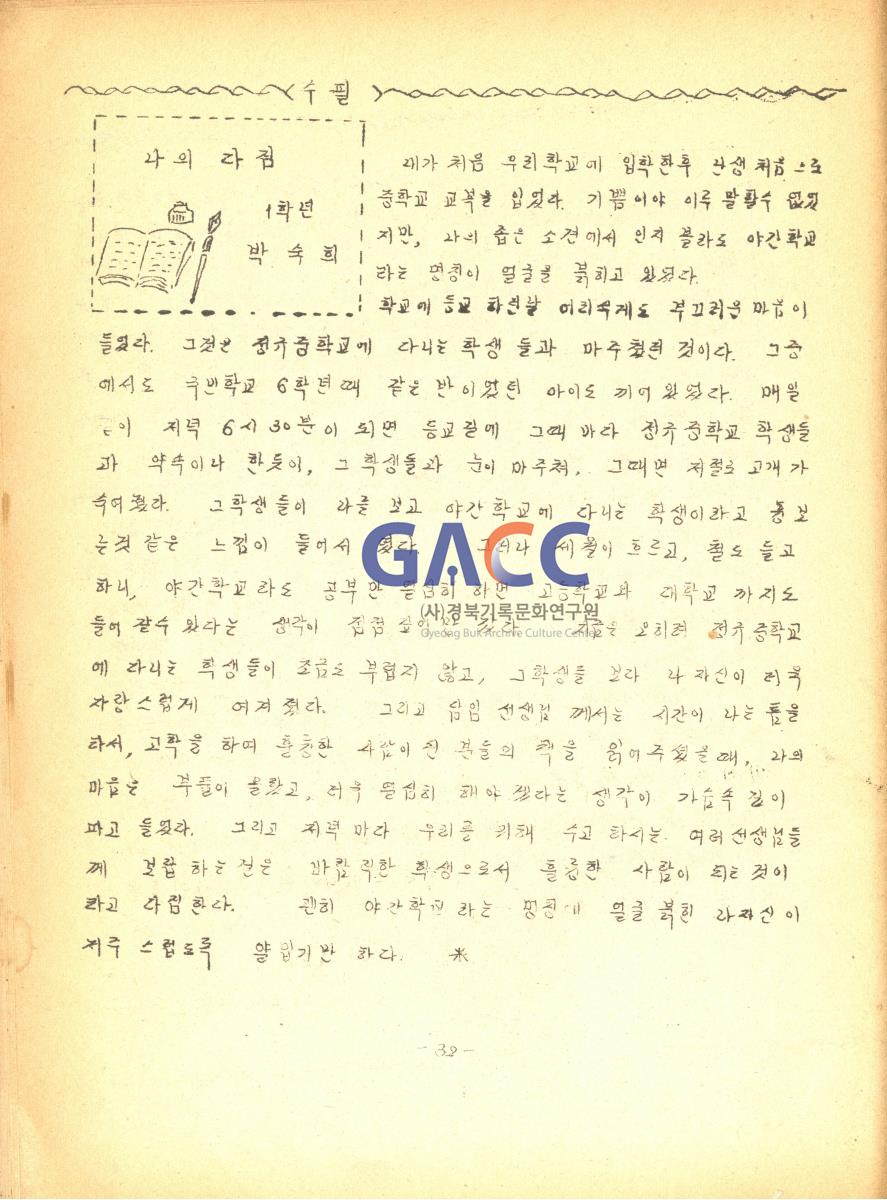 수필
나의 다짐
1학년
박숙희
내가 처음 우리학교에 입학한후 난생 처음으로
중학교 교복을 입었다. 기쁨이야 이루 말할수 없었
지만, 나의 좁은 소견에서 인지 몰라도 야간학교
라는 명칭이 얼굴을 붉히고 왔었다.
학교에 등교 하던날 어리숙게도 부끄러운 마음이
들었다. 그것은 정규중학교에 다니는 학생 들과 마주쳤던 것이다. 그중
에서도 국민학교 6학년때 같은 반이었던 아이도 끼어 있었다. 매일
같이 저녁 6시 30분이 되면 등교길에 그때 마다 정규중학교 학생들
과 약속이나 한듯이, 그 학생들과 눈이 마주쳐, 그때면 저절로 고개가
숙여졌다. 그학생들이 나를 보고 야간학교에 다니는 학생이라고 흉보
는것 같은 느낌이 들어서 였다. 그러나 세월이 흐르고, 철도 들고
하니, 야간학교라도 공부만 열심히 하면 고등학교와 대학교 까지도
들어 갈수 있다는 생각이 점점 지금은 오히려 정규중학교
에 다니는 학생들이 조금도 부럽지 않고, 그학생들 보다 나 자신이 더욱
자랑스럽게 여겨 졌다. 그리고 담임 선생님 께서는 시간이 나는 틈을
타서, 고학을 하여 훌륭한 사람이 된 분들의 책을 읽어주셨을때, 나의
마음은 부풀어 올랐고, 더욱 열심히 해야 겠다라는 생각이 가슴속 깊이
파고 들었다. 그리고 저녁 마다 우리를 위해 수고 하시는 여러선생님들
께 보답 하는 길은 바람직한 학생으로서 훌륭한 사람이 되는 것이
라고 다짐한다. 괜히 야간학교 라는 명칭에 얼굴 붉힌 나자신이
저주 스럽도록 얄밉기만 하다. 米
- 32 -
GACC
(사)경북기록문화연구원
Gyeong Buk Archive Culture Center